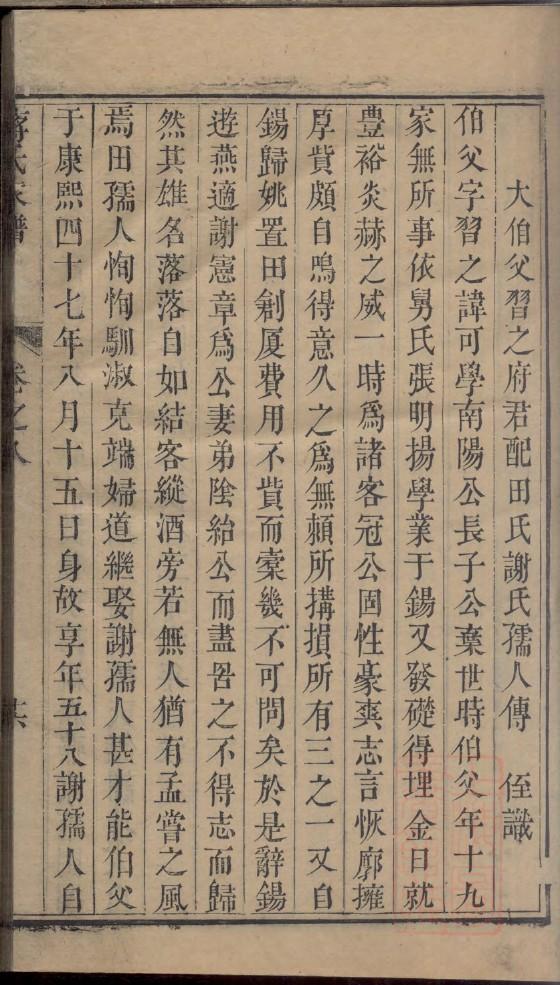 大伯父習之府君配田氏謝氏孺人傳　侄識
伯父字習之諱可學南陽公長子公棄世時伯父年十九
家無所事依舅氏張明揚學業于錫又發礎得埋金日就
豊裕炎赫之威一時爲諸客冠公固性豪爽志言恢廓擁
厚貲頗自鳴得意久之爲無頼所搆損所有三之一又自
錫歸姚置田剏厦費用不貲而槖幾不可問矣於是辭錫
遊燕適謝憲章爲公妻弟陰紿公而盡罟之不得志而歸
然其雄名落落自如結客縱酒旁若無人猶有孟嘗之風
焉田孺人恂恂馴淑克端婦道繼娶謝孺人甚才能伯父
于康熙四十七年八月十五日身故享年五十八謝孺人自
蔣氏家譜　卷之八